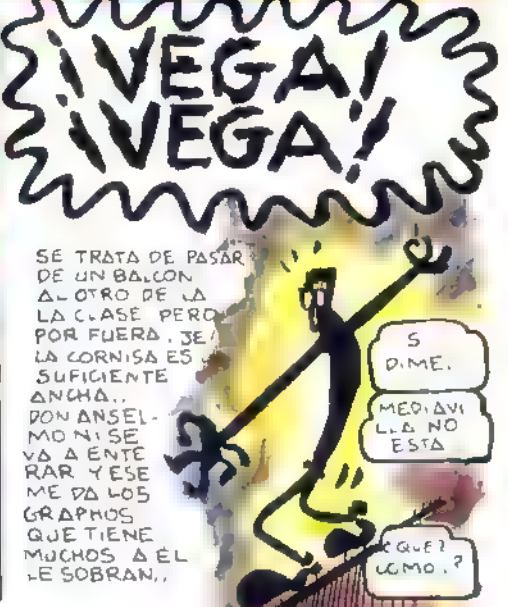 ¡VEGA!
¡VEGA!
SE TRATA DE PASAR
DE UN BALCON
AL OTRO DE LA
LA CLASE PERO
POR FUERA. JE
LA CORNISA ES
SUFICIENTE
ANCHA..
DON ANSEL-
MO NI SE
VA A ENTE
RAR Y ESE
ME DA LOS
GRAPHOS
QUE TIENE
MUCHOS A EL
LE SOBRAN..
S
DIME.
MEDIAVI
LLA NO
ESTA
¿QUE?
COMO.?